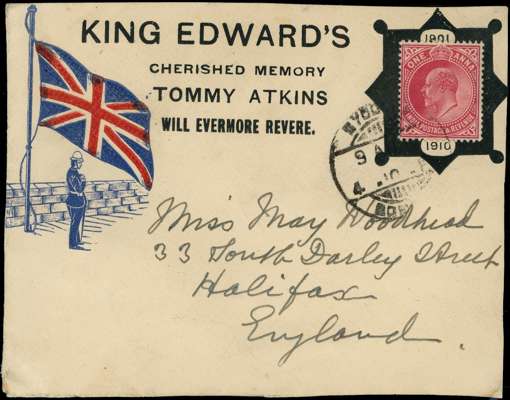 KING EDWARD'S
CHERISHED MEMORY
TOMMY ATKINS
WILL EVERMORE REVERE.
1901
ONE ANNA
INDIA POSTAGE & REVENUE
1910
9 A
4
Miss May Woodhead
33 South Darley Street
Halifax
England.